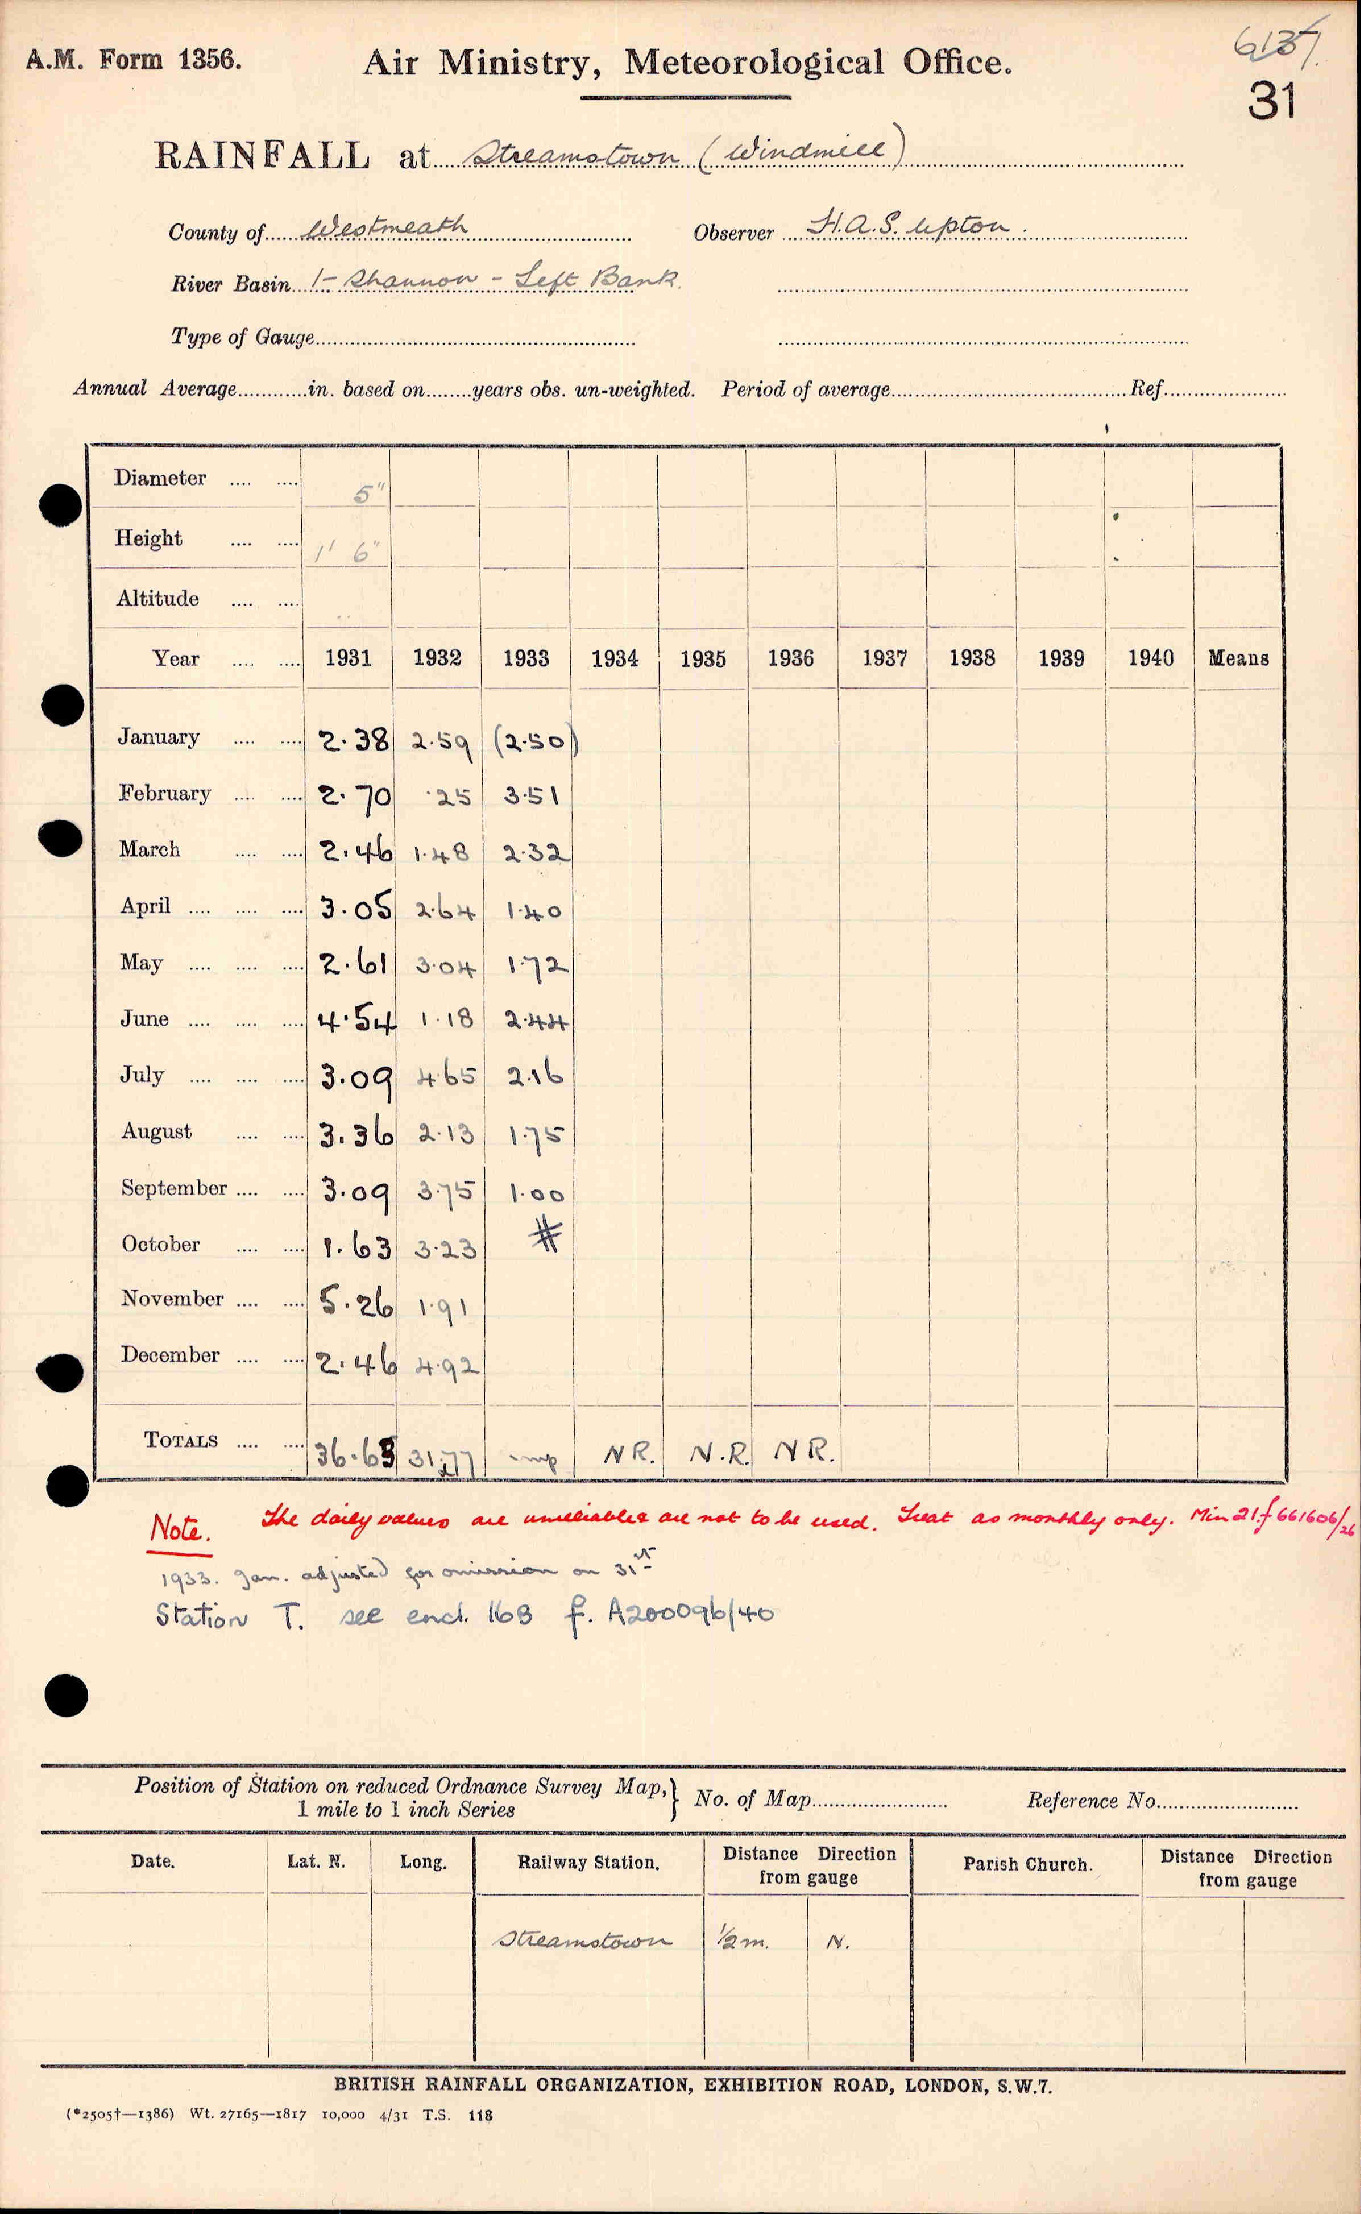 A.M. Form 1356.
Air Ministry, Meteorological Office.
6137
31
RAINFALL at Streamstown (Windmill)
County of Westmeath Observer H.A.S. Upton.
River Basin 1- Shannon - Left Bank.
Type of Gauge
Annual Average in. based on years obs. un-weighted. Period of average Ref.
Diameter 5"
Height 1' 6"
Altitude
Year 1931 1932 1933 1934 1935 1936 1937 1938 1939 1940 Means
January 2.38 2.59 (2.50)
February 2.70 .25 3.51
March 2.46 1.48 2.32
April 3.05 2.64 1.40
May 2.61 3.04 1.72
June 4.54 1.18 2.44
July 3.09 4.65 2.16
August 3.36 2.13 1.75
September 3.09 3.75 1.00
October 1.63 3.23 #
November 5.26 1.91
December 2.46 4.92
TOTALS 36.63 31.77 imp NR. N.R. NR.
Note. The daily values are unreliable & are not to be used. Treat as monthly only. Min 21 f 661606/26
1933. Jan. adjusted for omission on 31st
Station T. see encl. 16B f. A200096/40
Position of Station on reduced Ordnance Survey Map, 1 mile to 1 inch Series } No. of Map Reference No.
Date. Lat. N. Long. Railway Station. Distance Direction from gauge Parish Church. Distance Direction from gauge
Streamstown 1/2 m. N.
BRITISH RAINFALL ORGANIZATION, EXHIBITION ROAD, LONDON, S.W.7.
(*2505†—1386) Wt. 27165—1817 10,000 4/31 T.S. 118